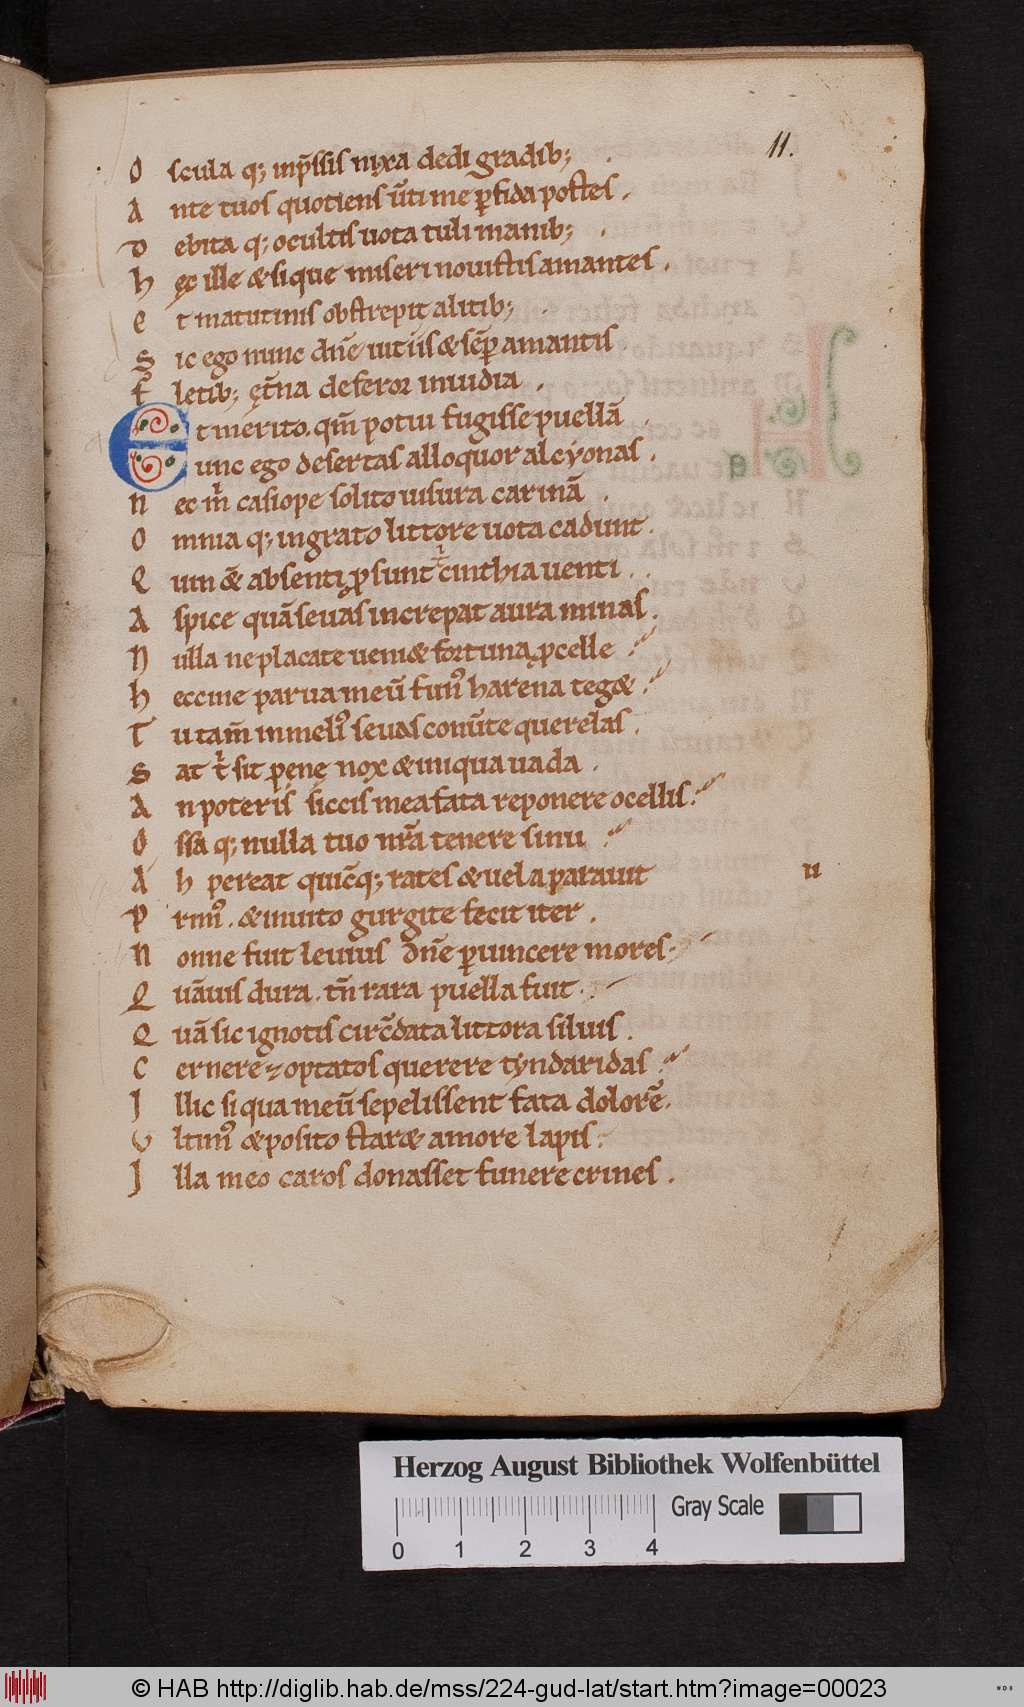 11.
O scula q; inp̄ssis nixa dedi gradib;
A nte tuos quotiens ūti me ꝑfida postes .
D ebita q; ocultis uota tuli manib;
h ęc ille & si que miseri nouistis amantes .
E t matutinis obstrepit alitib;
S ic ego nunc dn̄e uitiis & sēꝑ amantis
F letib; ęt̄na deferor inuidia .
E t merito. qm̄ potui fugisse puellā
unc ego desertas alloquor alcyonas .
N ec m̄ casiope solito uisura carinā .
O mnia q; ingrato littore uota cadunt .
Q uin &̄ absenti ꝓsunt t cinthia uenti .
A spice quā seuas increpat aura minas .
N ulla ne placate ueni& fortuna ꝓcelle
h eccine parua meū fun᷒ harena teg& .
T u tam̄ in meli᷒ seuas conūte querelas .
S at t sit penę nox & iniqua uada .
A n poteris siccis mea fata reponere ocellis .
O ssa q; nulla tuo nr̄a tenere sinu
A h pereat quic̄q; rates & uela parauit
n
P rim᷒ . & inuito gurgite fecit iter .
N onne fuit leuius dn̄e ꝑuincere mores .
Q uāuis dura . tn̄ rara puella fuit .
Q uā sic ignotis circ̄data littora siluis .
C ernere ⁊ optatos querere tyndaridas .
I llic si qua meū sepelissent fata dolorē .
V ltim᷒ & posito star& amore lapis .
I lla meo caros donasset funere crines .
Herzog August Bibliothek Wolfenbüttel
Gray Scale
0 1 2 3 4
© HAB http://diglib.hab.de/mss/224-gud-lat/start.htm?image=00023